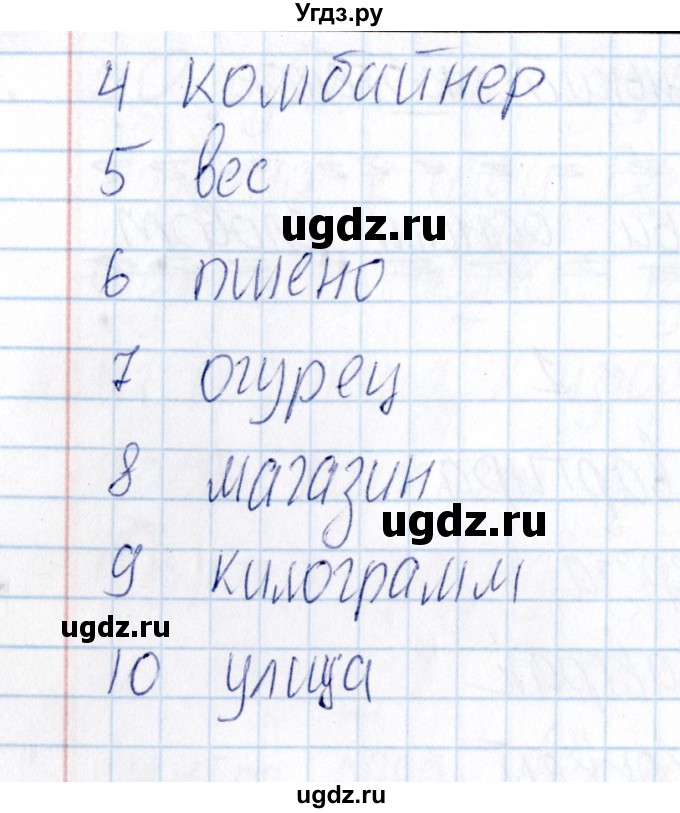 Угдз.ру
4 комбайнер
5 вес
ugdz.ru
6 пшено
7 огурец
8 магазин
ugdz.ru
9 килограмм
ugdz.ru
10 улица
ugdz.ru